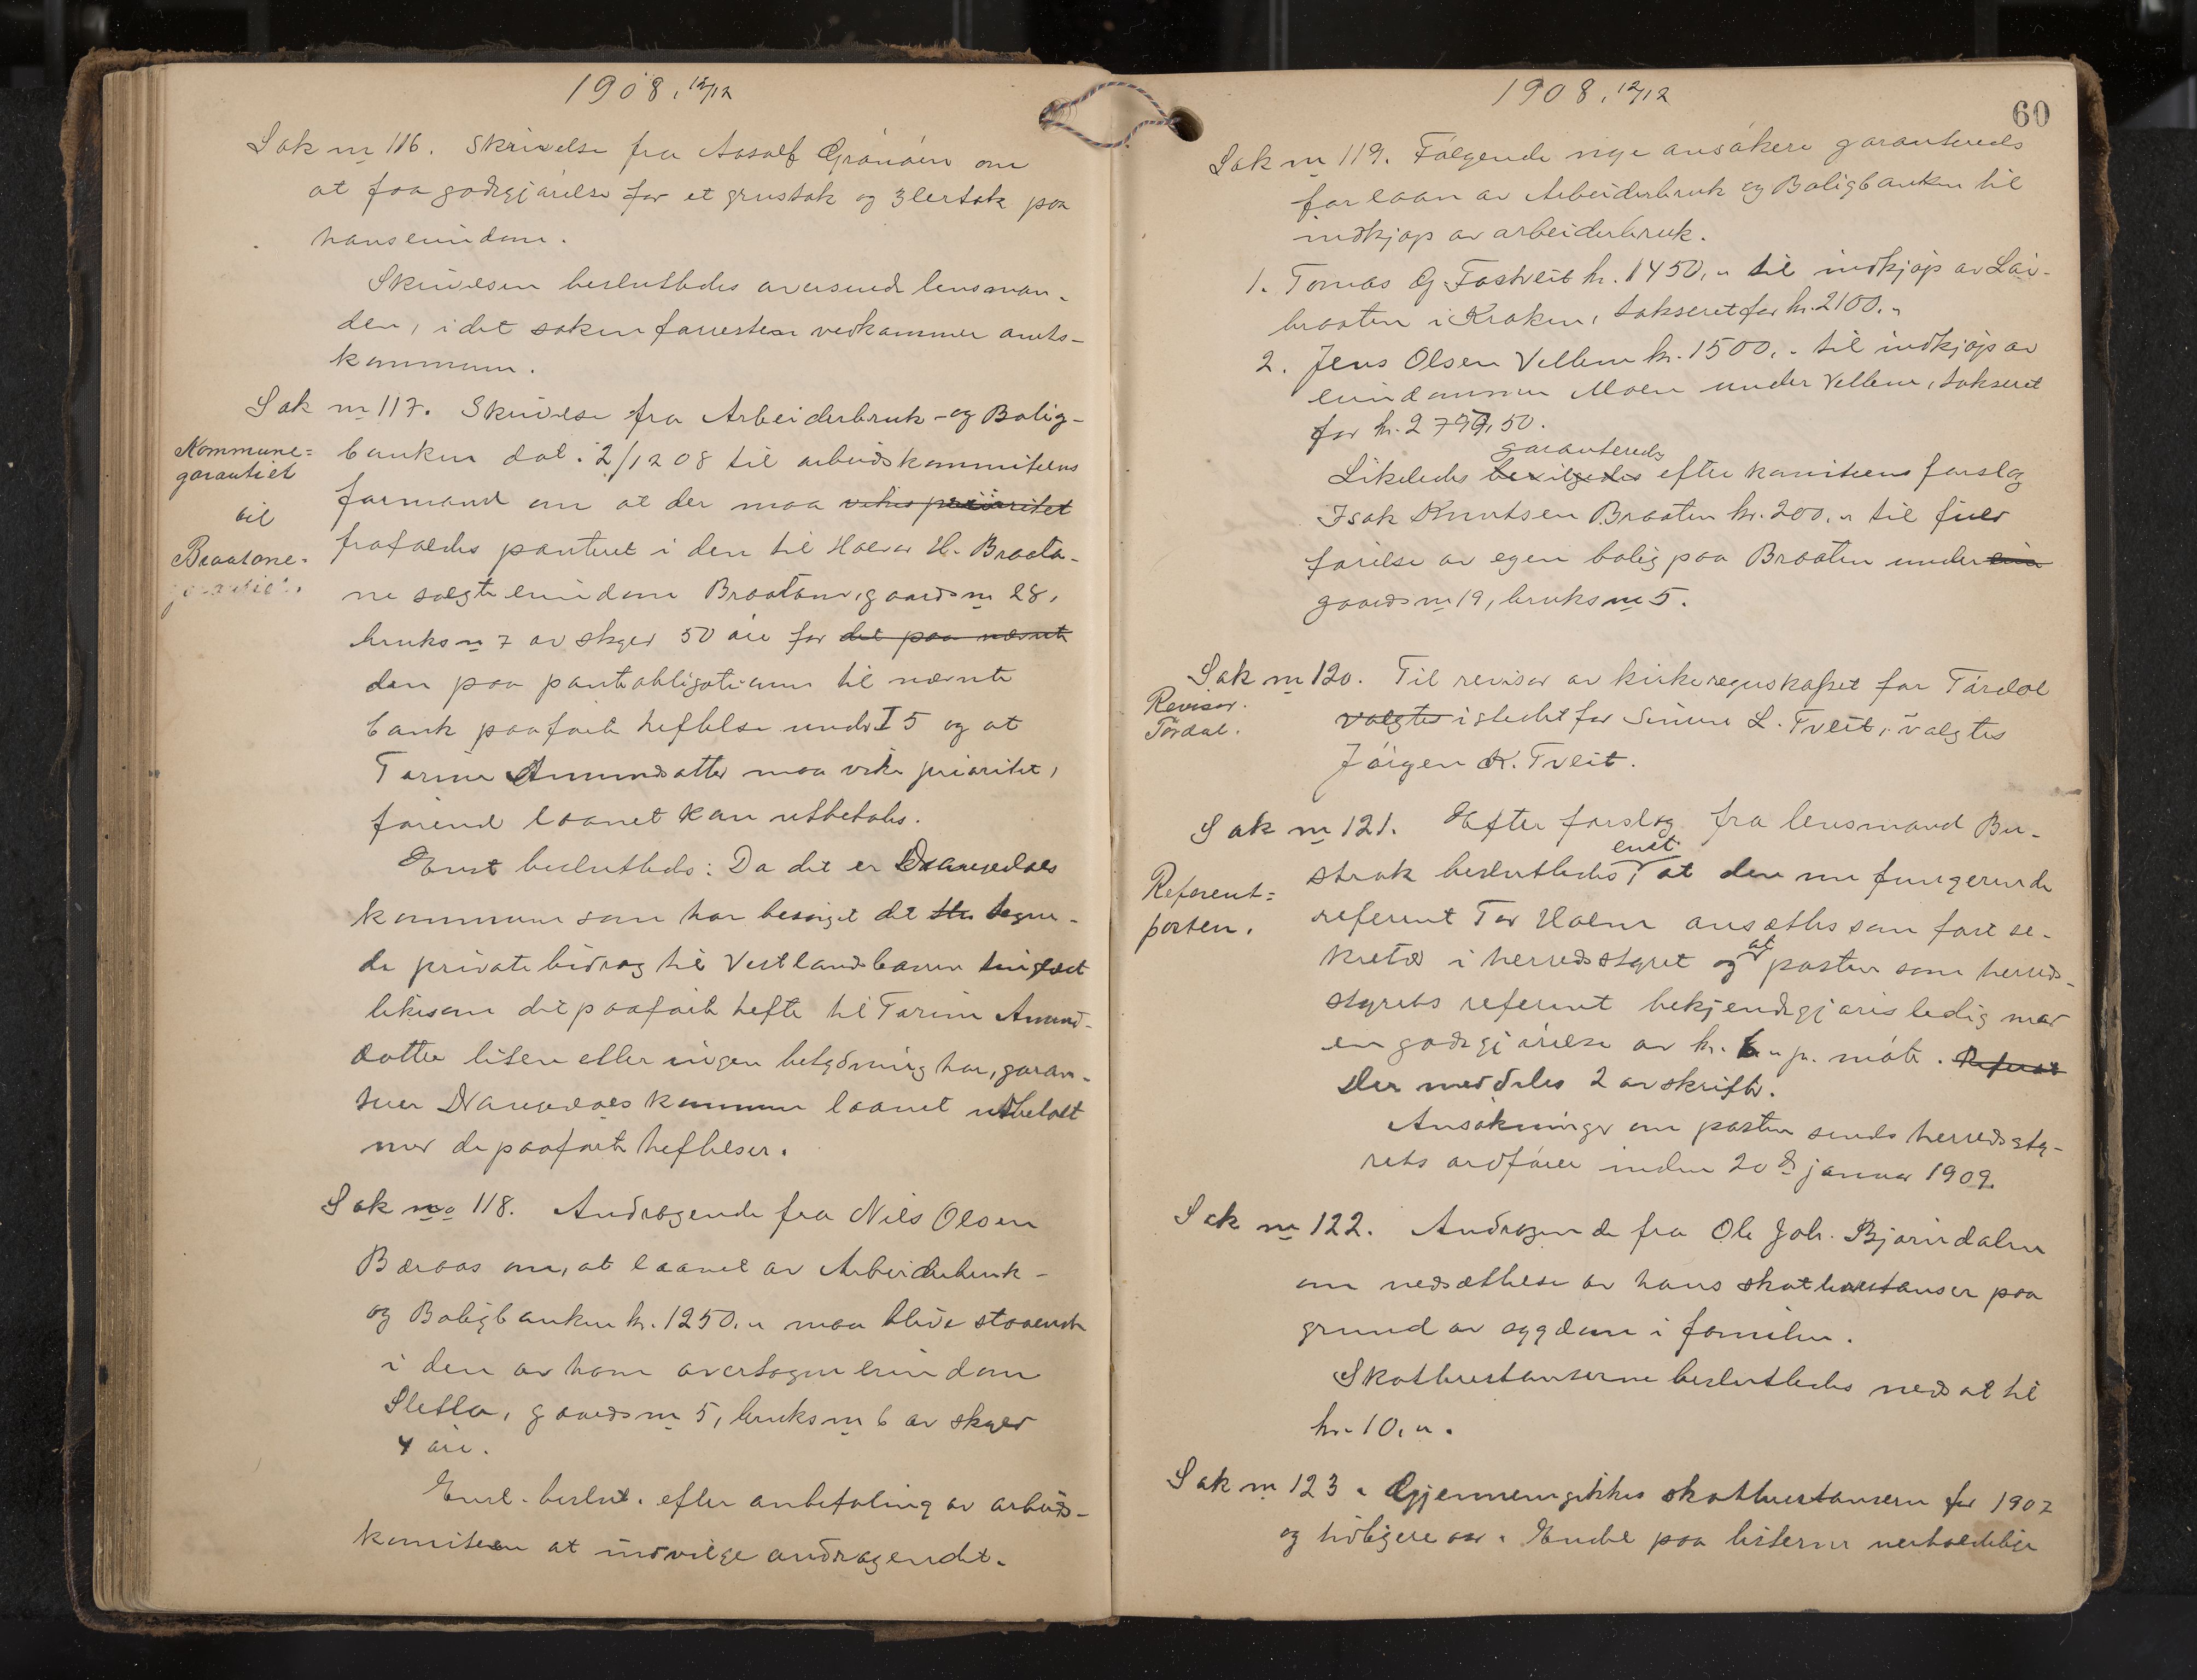 1908, 12/12
Sak nr 116. Skrivelse fra Aasolf Grønåen om
at faa godtgjørelse for et grustak og 3 lertak paa
hans eiendom.
Skrivelsen besluttedes oversendt lensman-
den, i det saken forresten vedkommer amts-
kommunen.
Sak nr 117. Skrivelse fra Arbeiderbruk- og Bolig-
Kommune=
garantiet
til
Braatane-
garantiet.
banken dat. 2/12 08 til arbeidskommiteens
formand om at der maa vikes prioritet
frafaldes panteret i den til Halvor H. Braata-
ne solgte eiendom Braatane, gaards nr 28,
bruks nr 7 av skyld 50 øre for det paa nævnte
den paa panteobligationen til nævnte
bank paaførte heftelse under I 5 og at
Torine Amundsdatter maa vike prioritet,
førend laanet kan utbetales.
Enst besluttedes: Da det er Drangedals
kommune som har besørget det tegne-
de private bidrag til Vestlandsbanen tinglæst
likesom det paaførte hefte til Torine Amund-
datter liten eller ingen betydning har, garan-
terer Drangedals kommune laanet utbetalt
med de paaførte heftelser.
Sak no 118. Andragende fra Nils Olsen
Bæraas om, at laanet av Arbeiderbruk-
og Boligbanken kr. 1250,- maa blive staaende
i den av ham overtagne eiendom
Sletta, gaards nr 5, bruks nr 6 av skyld
4 øre.
Enst. beslut. efter anbefaling av arbeids-
komiteen at indvilge andragendet.
1908, 12/12
60
Sak nr 119. Følgende nye ansøkere garantereds
for laan av Arbeiderbruk og Boligbanken til
indkjøp av arbeiderbruk.
1. Tomas G. Fostveit kr. 1450,- til indkjøp av Løi-
braaten i Kroken, takseret for kr. 2100,-
2. Jens Olsen Vellene kr. 1500,- til indkjøp av
eiendommen Moen under Vellene, takseret
for kr. 2797,50.
garantereds
Likeledes bevilgedes efter komiteens forslag
Isak Knutsen Braaten kr. 200,- til fuld
førelse av egen bolig paa Braaten under
gaards nr 19, bruks nr 5.
Sak nr 120. Til revisor av kirkeregnskapet for Tørdal
Revisor.
Tørdal.
valgtes istedet for Simen L. Tveit, valgtes
Jørgen K. Tveit.
Sak nr 121. Efter forslag fra lensmand Bu-
enst.
strak besluttedes, at den nu fungerende
Referent=
posten.
referent Tor Holme ansættes som fast se-
at
kretær i herredsstyret og posten som herreds-
styrets referent bekjendtgjøres ledig med
en godtgjørelse av kr. 6,- pr. møte. Referat
Der meddeles 2 avskrifter.
Ansøkninger om posten sendes herredssty-
rets ordfører inden 20de januar 1909.
Sak nr 122. Andragende fra Ole Joh. Bjørndalen
om nedsættelse av hans skatterestanser paa
grund av sygdom i familien.
Skatterestanserne besluttedes nedsat til
kr. 10,-.
Sak nr 123. Gjennemgikkes skatterestansern for 1907
og tidligere aar. Endel paa listerne uerholdelige